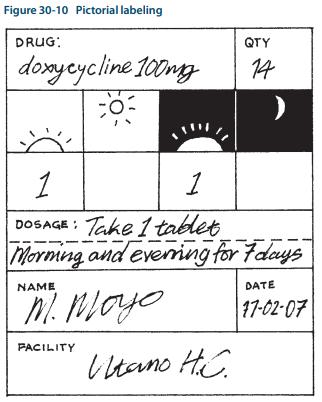 Figure 30-10 Pictorial labeling
DRUG: QTY
doxycycline 100mg 14
1 1
DOSAGE: Take 1 tablet
Morning and evening for 7 days
NAME DATE
M. Moyo 17-02-07
FACILITY
Utano H.C.